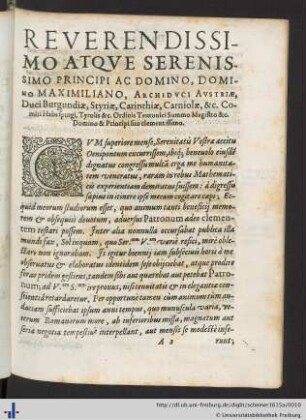 REVERENDISSI-
MO ATQVE SERENIS-
SIMO PRINCIPI AC DOMINO, DOMI-
no MAXIMILIANO, ARCHIDVCI AVSTRIÆ,
Duci Burgundiæ, Styriæ, Carinthiæ, Carniolæ, &c. Co-
miti Habspurgi, Tyrolis &c. Ordinis Teutonici Summo Magistro &c.
Domino & Principi suo clementissimo.
CVM superiore mense, Serenitatis Vestræ accitu
Oenipontum excurrissem, ibiq́; benevolo eiusdē
dignatus congressu multā erga me humanita-
tem veneratus, raram in rebus Mathemati-
cis experientiam demiratus fuissem: à digressu
sæpius in itinere apud meum cogitare cœpi; Ec-
quid meorum studiorum esset, quo animum tanti beneficij memo-
rem & obsequijs devotum, adversus Patronum adeo clemen-
tem testari possem. Inter alia nonnulla occursabat publica illa
mundi fax, Sol inquam, quo Ser. variè refici, mirè oble-
ctari non ignorabam. Is igitur biennij iam subsecivis horis à me
observatus & elaboratus dentidem sese objiciebat, atque prodire
foras pridem gestiens, tandem sibi aut quærebat aut petebat Patro-
num; ad V. S. ire pronus, nisi tenuitatis & in elegantiæ con-
scientiâ retardaretur. Peropportunè tamen cùm animum tum au-
daciam sufficiebat ipsum anni tempus, quo munuscula varia, ve-
terum Romanorum more, ab inferioribus missa, magnatum aut
seria negotia tempestiuè interpellant, aut mensis se modestè infe-
A 2 runt,
http://dl.ub.uni-freiburg.de/diglit/scheiner1615a/0003
© Universitätsbibliothek Freiburg